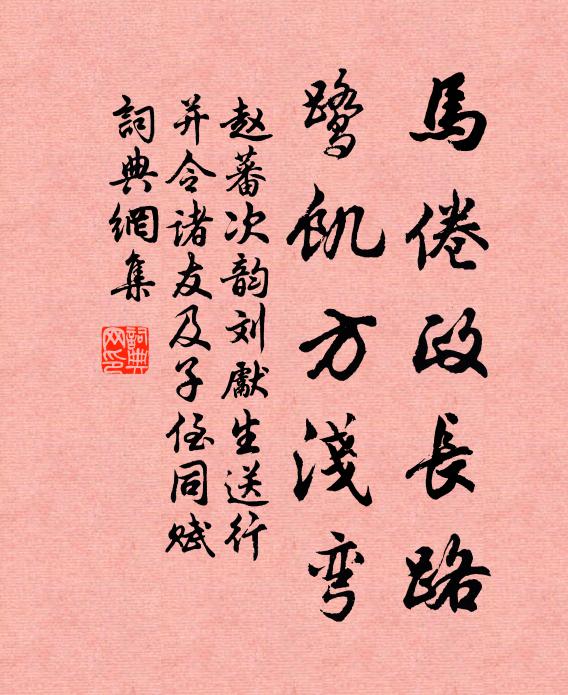 馬倦政長路
鹭飢方淺弯
赵蕃次韵刘獻生送行
并令诸友及子侄同赋
詞典網集
詞典网印